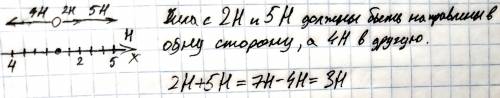 4Н 2Н 5Н
Н
4 2 5 X
Сила с 2Н и 5Н должны быть направлены в
одну сторону, а 4Н в другую.
2Н+5Н=7Н-4Н=3Н